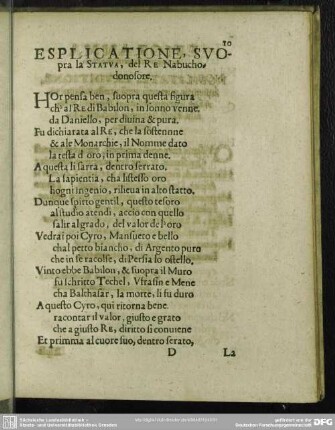 10
ESPLICATIONE, SVO-
pra la STATVA, del RE Nabucho-
donosore.
HOr pensa ben, suopra questa figura
ch' al RE di Babilon, in sonno venne.
da Daniello, per diuina & pura.
Fu dichiarata al RE, che la sostennne
& ale Monarchie, il Nomme dato
la testa d'oro, in prima denne.
A questa li sarra, dentro serrato.
La sapientia, cha listesso oro
hogni ingenio, rilieua in alto statto.
Dunque spirto gentil, questo tesoro
al studio atendi, accio con quello
salir al grado, del valor del'oro
Vedrai poi Cyro, Mansueto e bello
chal petto biancho, di Argento puro
che in se racolse, di Persia so ostello,
Vinto ebbe Babilon, & suopra il Muro
fu schritto Techel, Vfrasin e Mene
cha Balthasar, la morte, li fu duro
A questo Cyro, qui ritorna bene
racontar il valor, giusto e grato
che a giusto RE, diritto si conuiene
Et primma al cuore suo, dentro serato,
D La